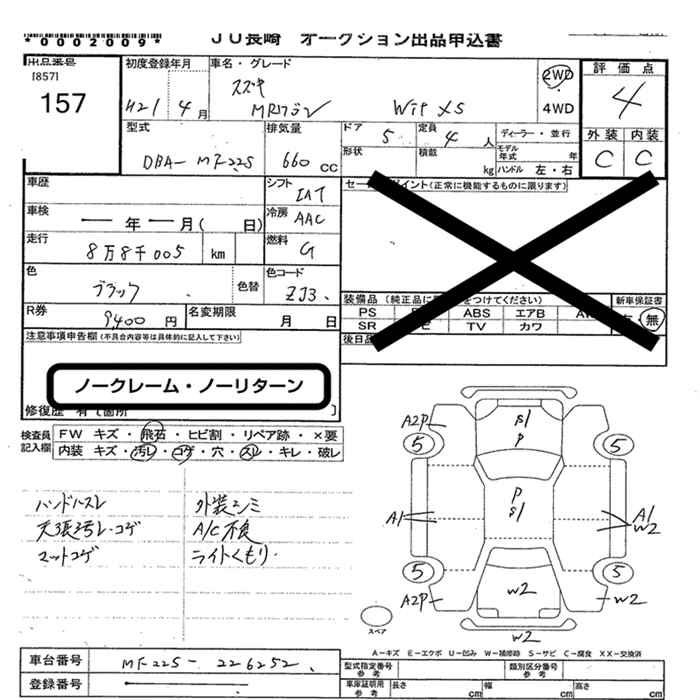 *0002009*
JU長崎 オークション出品申込書
出品番号
[857]
157
初度登録年月
H21 4月
車名・グレード
スズキ
MRワゴン Wit XS
2WD
4WD
評価点
4
外装 内装
C C
型式
DBA- MF22S
排気量
660 cc
ドア 5
定員 4 人
ディーラー・並行
形状
積載 kg
モデル年式 年
ハンドル 左・右
車歴
シフト IAT
セールスポイント(正常に機能するものに限ります)
車検 ー年ー月( 日)
冷房 AAC
走行 8万8千005 km
燃料 G
色 ブラック
色替
色コード ZJ3
装備品(純正品に をつけてください)
新車保証書
PS ABS エアB
SR TV カワ
無
R券 9400 円
名変期限 月 日
後日品
注意事項申告欄(不具合内容等は具体的に記入して下さい)
ノークレーム・ノーリターン
修復歴 有(箇所 ]
検査員記入欄
FW キズ・飛石・ヒビ割・リペア跡・×要
内装 キズ・汚レ・コゲ・穴・スレ・キレ・破レ
ハンドルスレ 外装シミ
天張汚レ・コゲ A/C不良
マットコゲ ライトくもり
A2P S1 P
5 5
P S1
A1 A1 W2
5 5
A2P W2 W2
スペア
W2
A−キズ E−エクボ U−凹み W−補修跡 S−サビ C−腐食 XX−交換済
車台番号 MF22S- 226252
登録番号
型式指定番号 参考
類別区分番号 参考
車庫証明用 参考
長さ cm 幅 cm 高さ cm